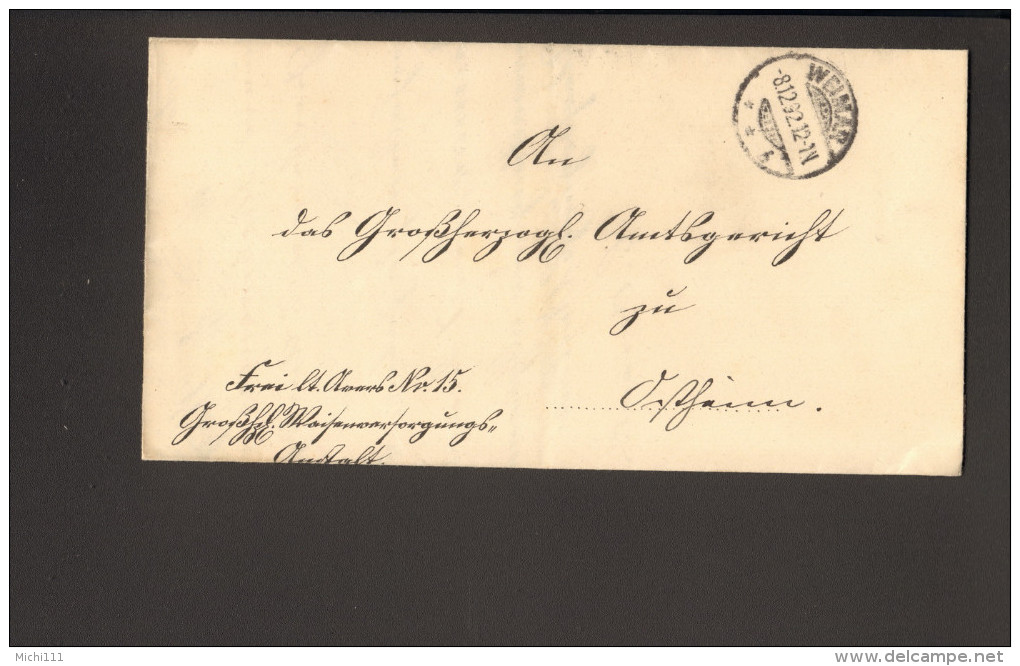 WEIMAR
-8.12.92.12-1N
An
das Großherzogl. Amtsgericht
zu
Ostheim.
Frei lt. Avers No. 15.
Großhzl. Waisenversorgungs-
Anstalt.
Michi111
www.delcampe.net